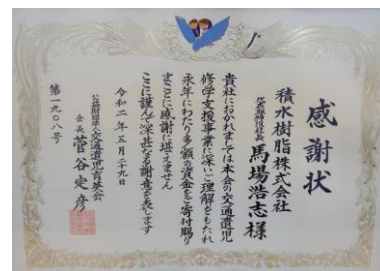 感謝状
積水樹脂株式会社
代表取締役社長 馬場浩志様
貴社におかれましては本会の交通遺児
修学支援事業に深いご理解をもたれ
永年にわたり多額の資金をご寄付賜り
まことに感謝に堪えません
ここに謹んで深甚なる謝意を表します
令和二年五月二十九日
公益財団法人交通遺児育英会
会長 菅谷定彦
第一九〇八号